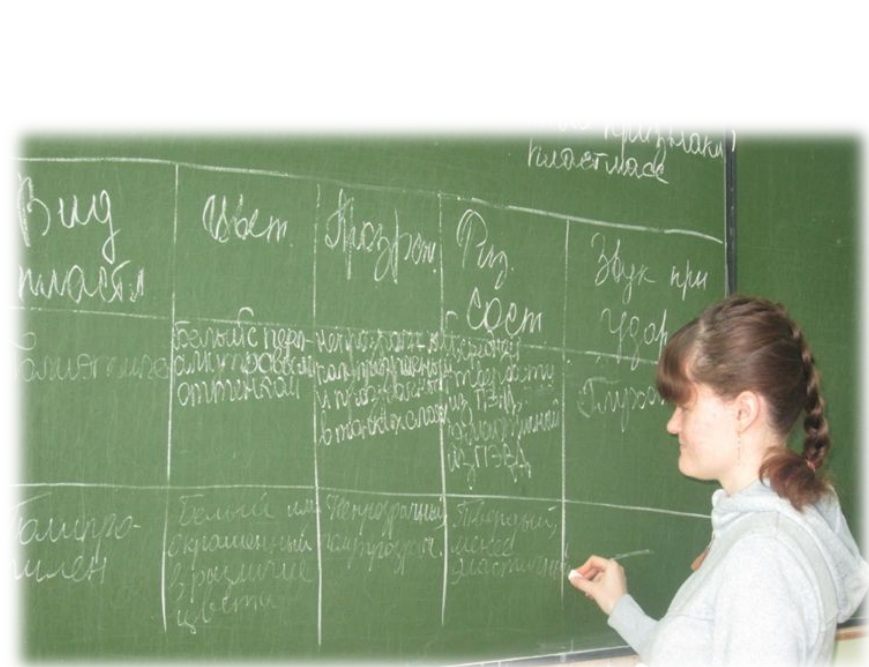 признаки
пластмасс
Вид
пластм
Цвет.
Прозрач.
Физ.
сост
Звук при
удар
белый с перл-
амутровым
оттенком
непрозрачный
полупрозрачный
и прозрачный
в тонких слоях
твердости
из ПЭНД,
эластичный
из ПЭВД
Глухой
Полипро-
пилен
Белый или
окрашенный
в различные
цвета
Непрозрачный,
полупрозрач.
Твердый,
менее
эластичный